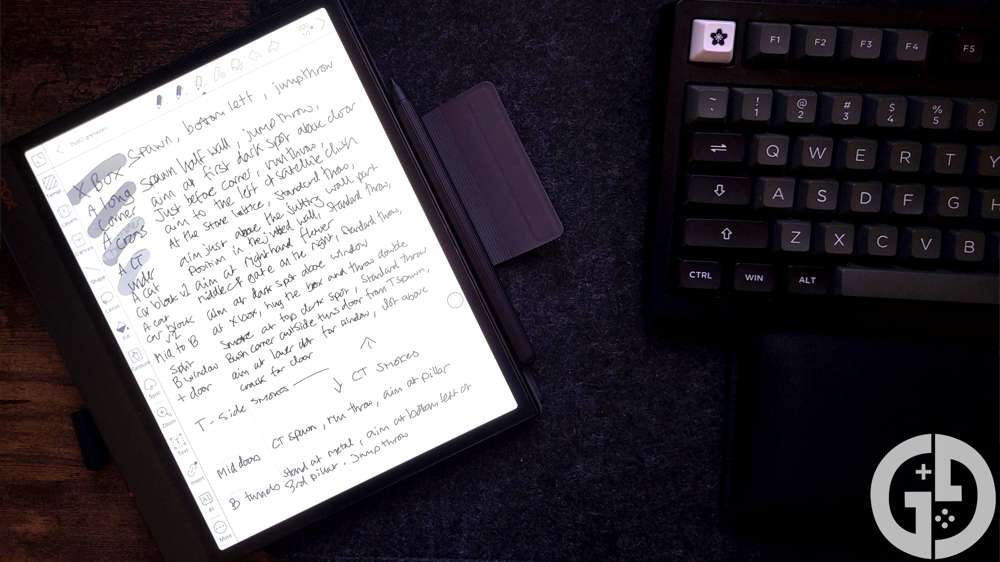 X Box Spawn, bottom left, jumpthrow
A long corner Spawn half wall, jumpthrow,
aim at first dark spot above door
A cross Just before corner, run throw,
aim to the left of satellite dish
A CT At the stone lattice, standard throw,
aim just above the jutting wall part
under A cat Position in the jutted wall, standard throw,
Car block v1 aim at righthand flower
A car middle of gate on the right, standard throw,
car block v2 aim at dark spot above window
Mid to B at Xbox, hug the box and throw double
split smoke at top dark spot, standard throw
B window Bush corner outside this door from T spawn,
+ door aim at lower dot for window, dot above
crack for door
T-side smokes
CT smokes
Mid doors CT spawn, run throw, aim at pillar
B tunnels stand at metal, aim at bottom left of
3rd pillar, jumpthrow
Fill
Zoom
Text
Insert
AI
More
F1 F2 F3 F4 F5
~ ` ! 1 @ 2 # 3 $ 4 % 5 ^ 6
Q W E R T Y
A S D F G H
Z X C V B
CTRL WIN ALT
GL